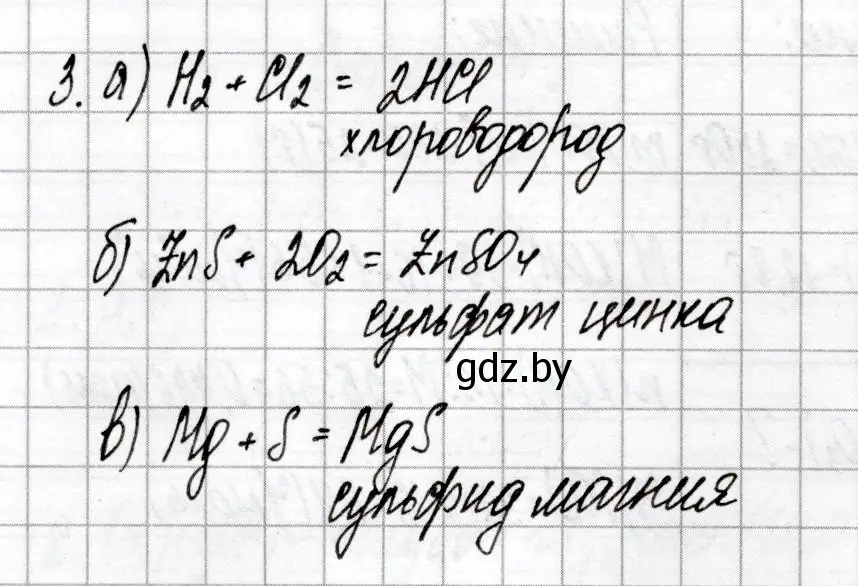 3. а) H₂ + Cl₂ = 2HCl
хлороводород
б) ZnS + 2O₂ = ZnSO₄
сульфат цинка
gdz.by
в) Mg + S = MgS
сульфид магния